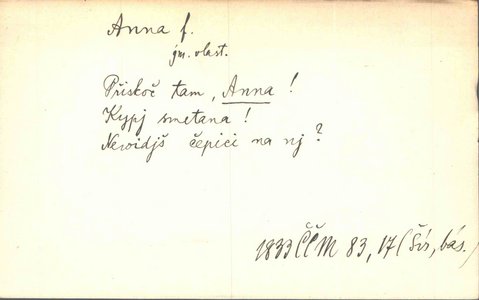 Anna f.
jm. vlast.
Přiskoč tam, Anna!
Kypj smetana!
Newidjš čepici na nj?
1833 ČČM 83, 17 (Šír, bás.)